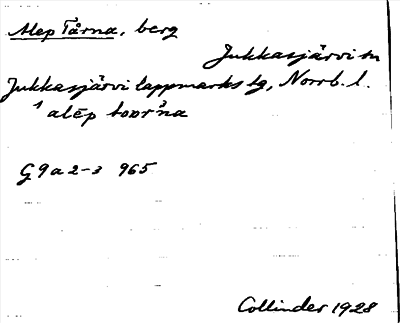 Alep Tårna, berg
Jukkasjärvi sn
Jukkasjärvi lappmarks tg, Norrb. l.
G 9 a 2-3 965
Collinder 1928